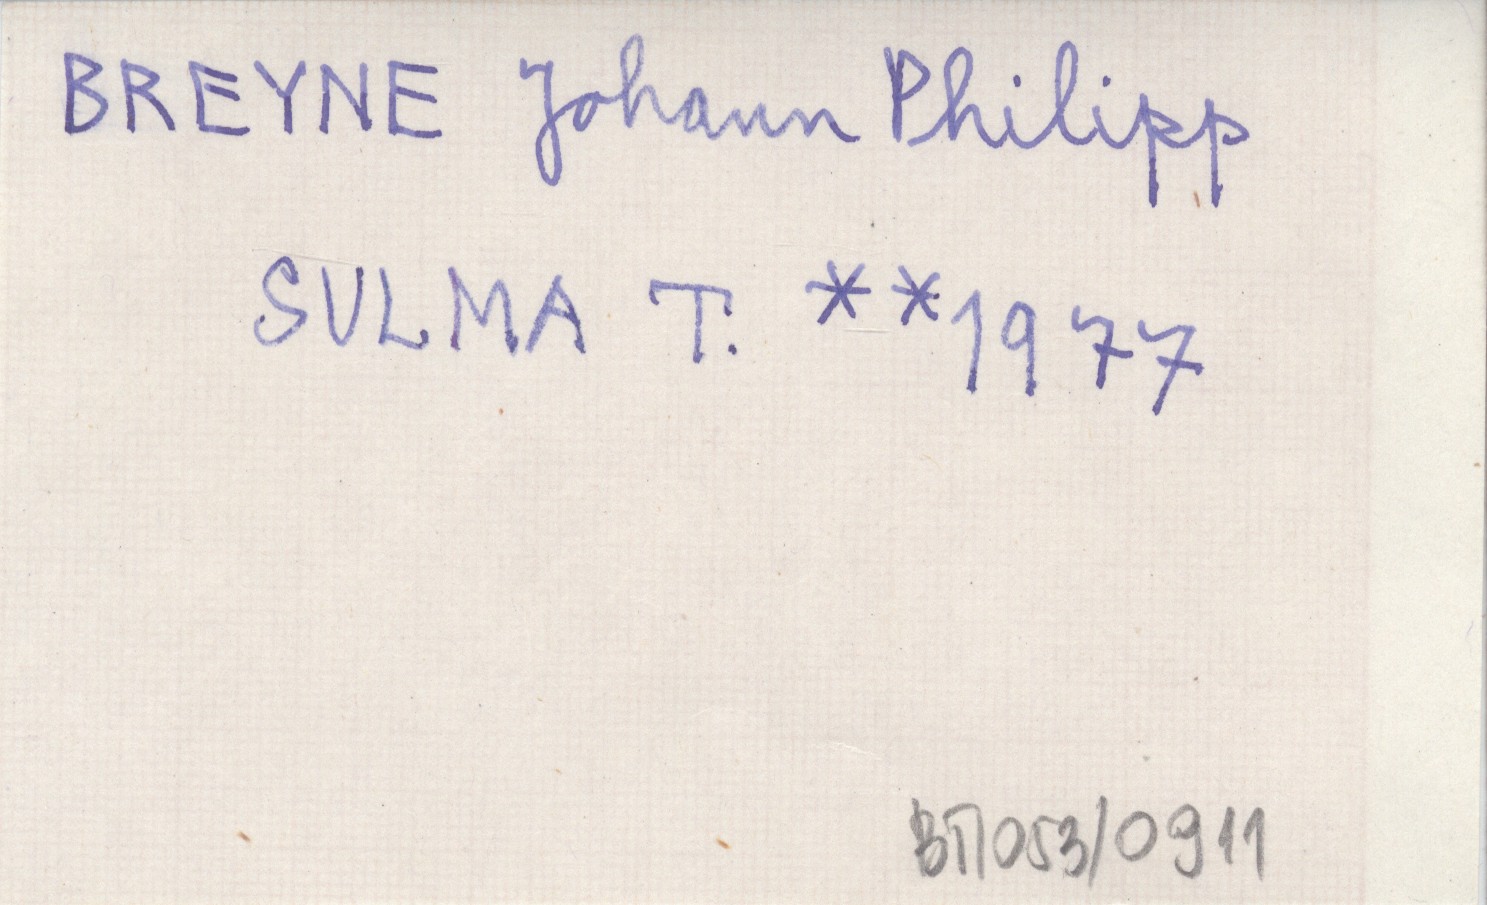 BREYNE Johann Philipp
SULMA T. **1977
BΠ053/0911